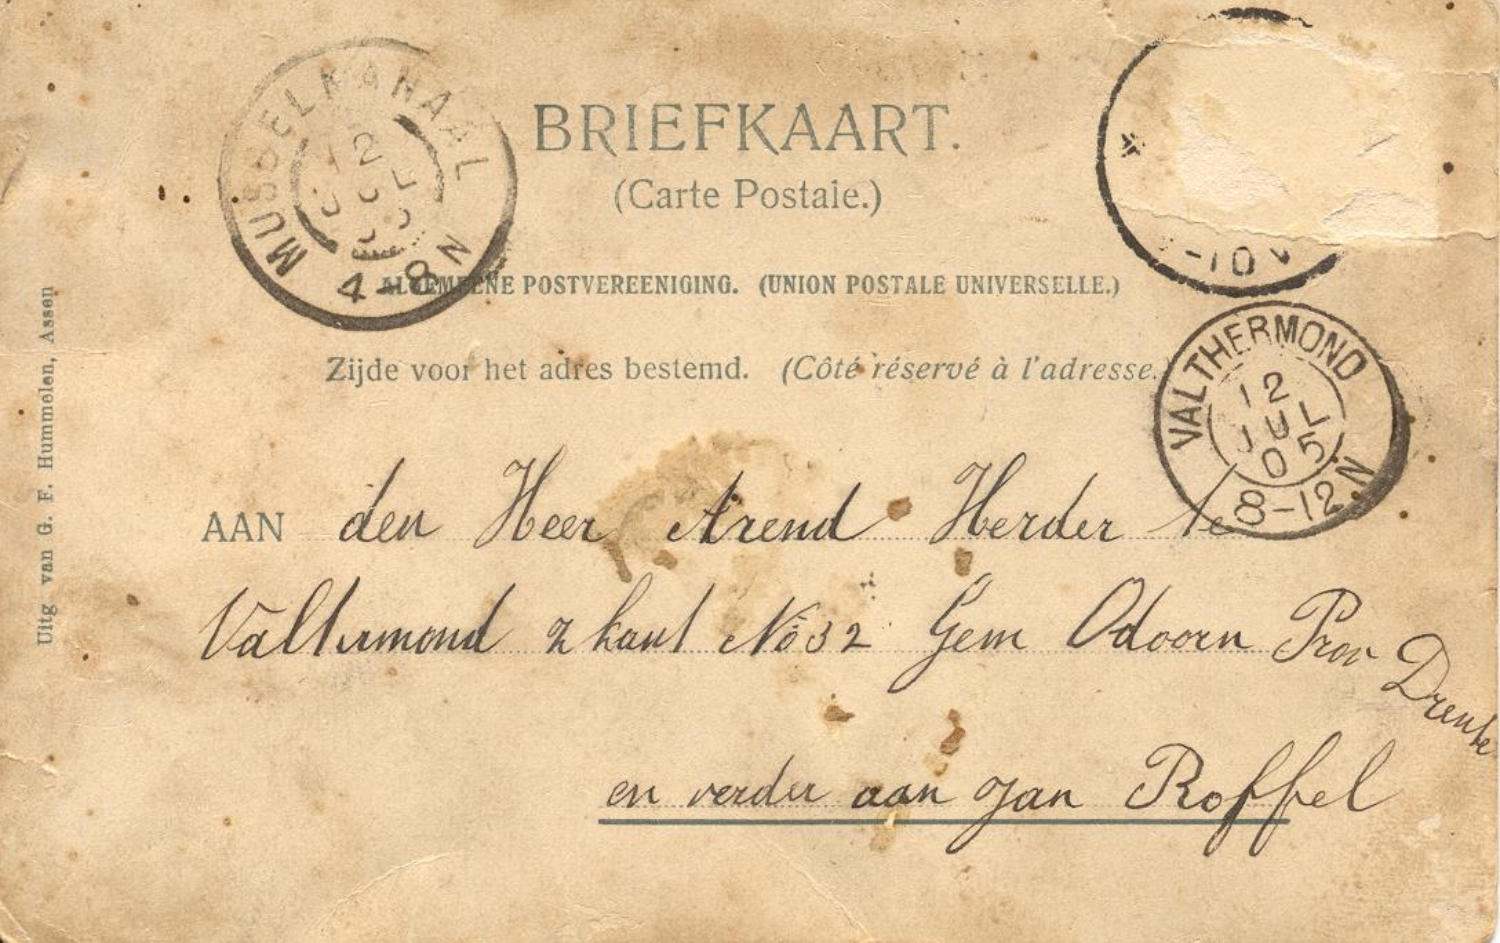 MUSSELKANAAL
12
JUL
05
4-8N
BRIEFKAART.
(Carte Postale.)
ALGEMEENE POSTVEREENIGING. (UNION POSTALE UNIVERSELLE.)
Zijde voor het adres bestemd. (Côté réservé à l'adresse.)
-10V
VALTHERMOND
12
JUL
05
8-12N
AAN den Heer Arend Herder te
Valtermond z kant No 32 Gem Odoorn Prov Drente
en verder aan Jan Roffel
Uitg van G. F. Hummelen, Assen